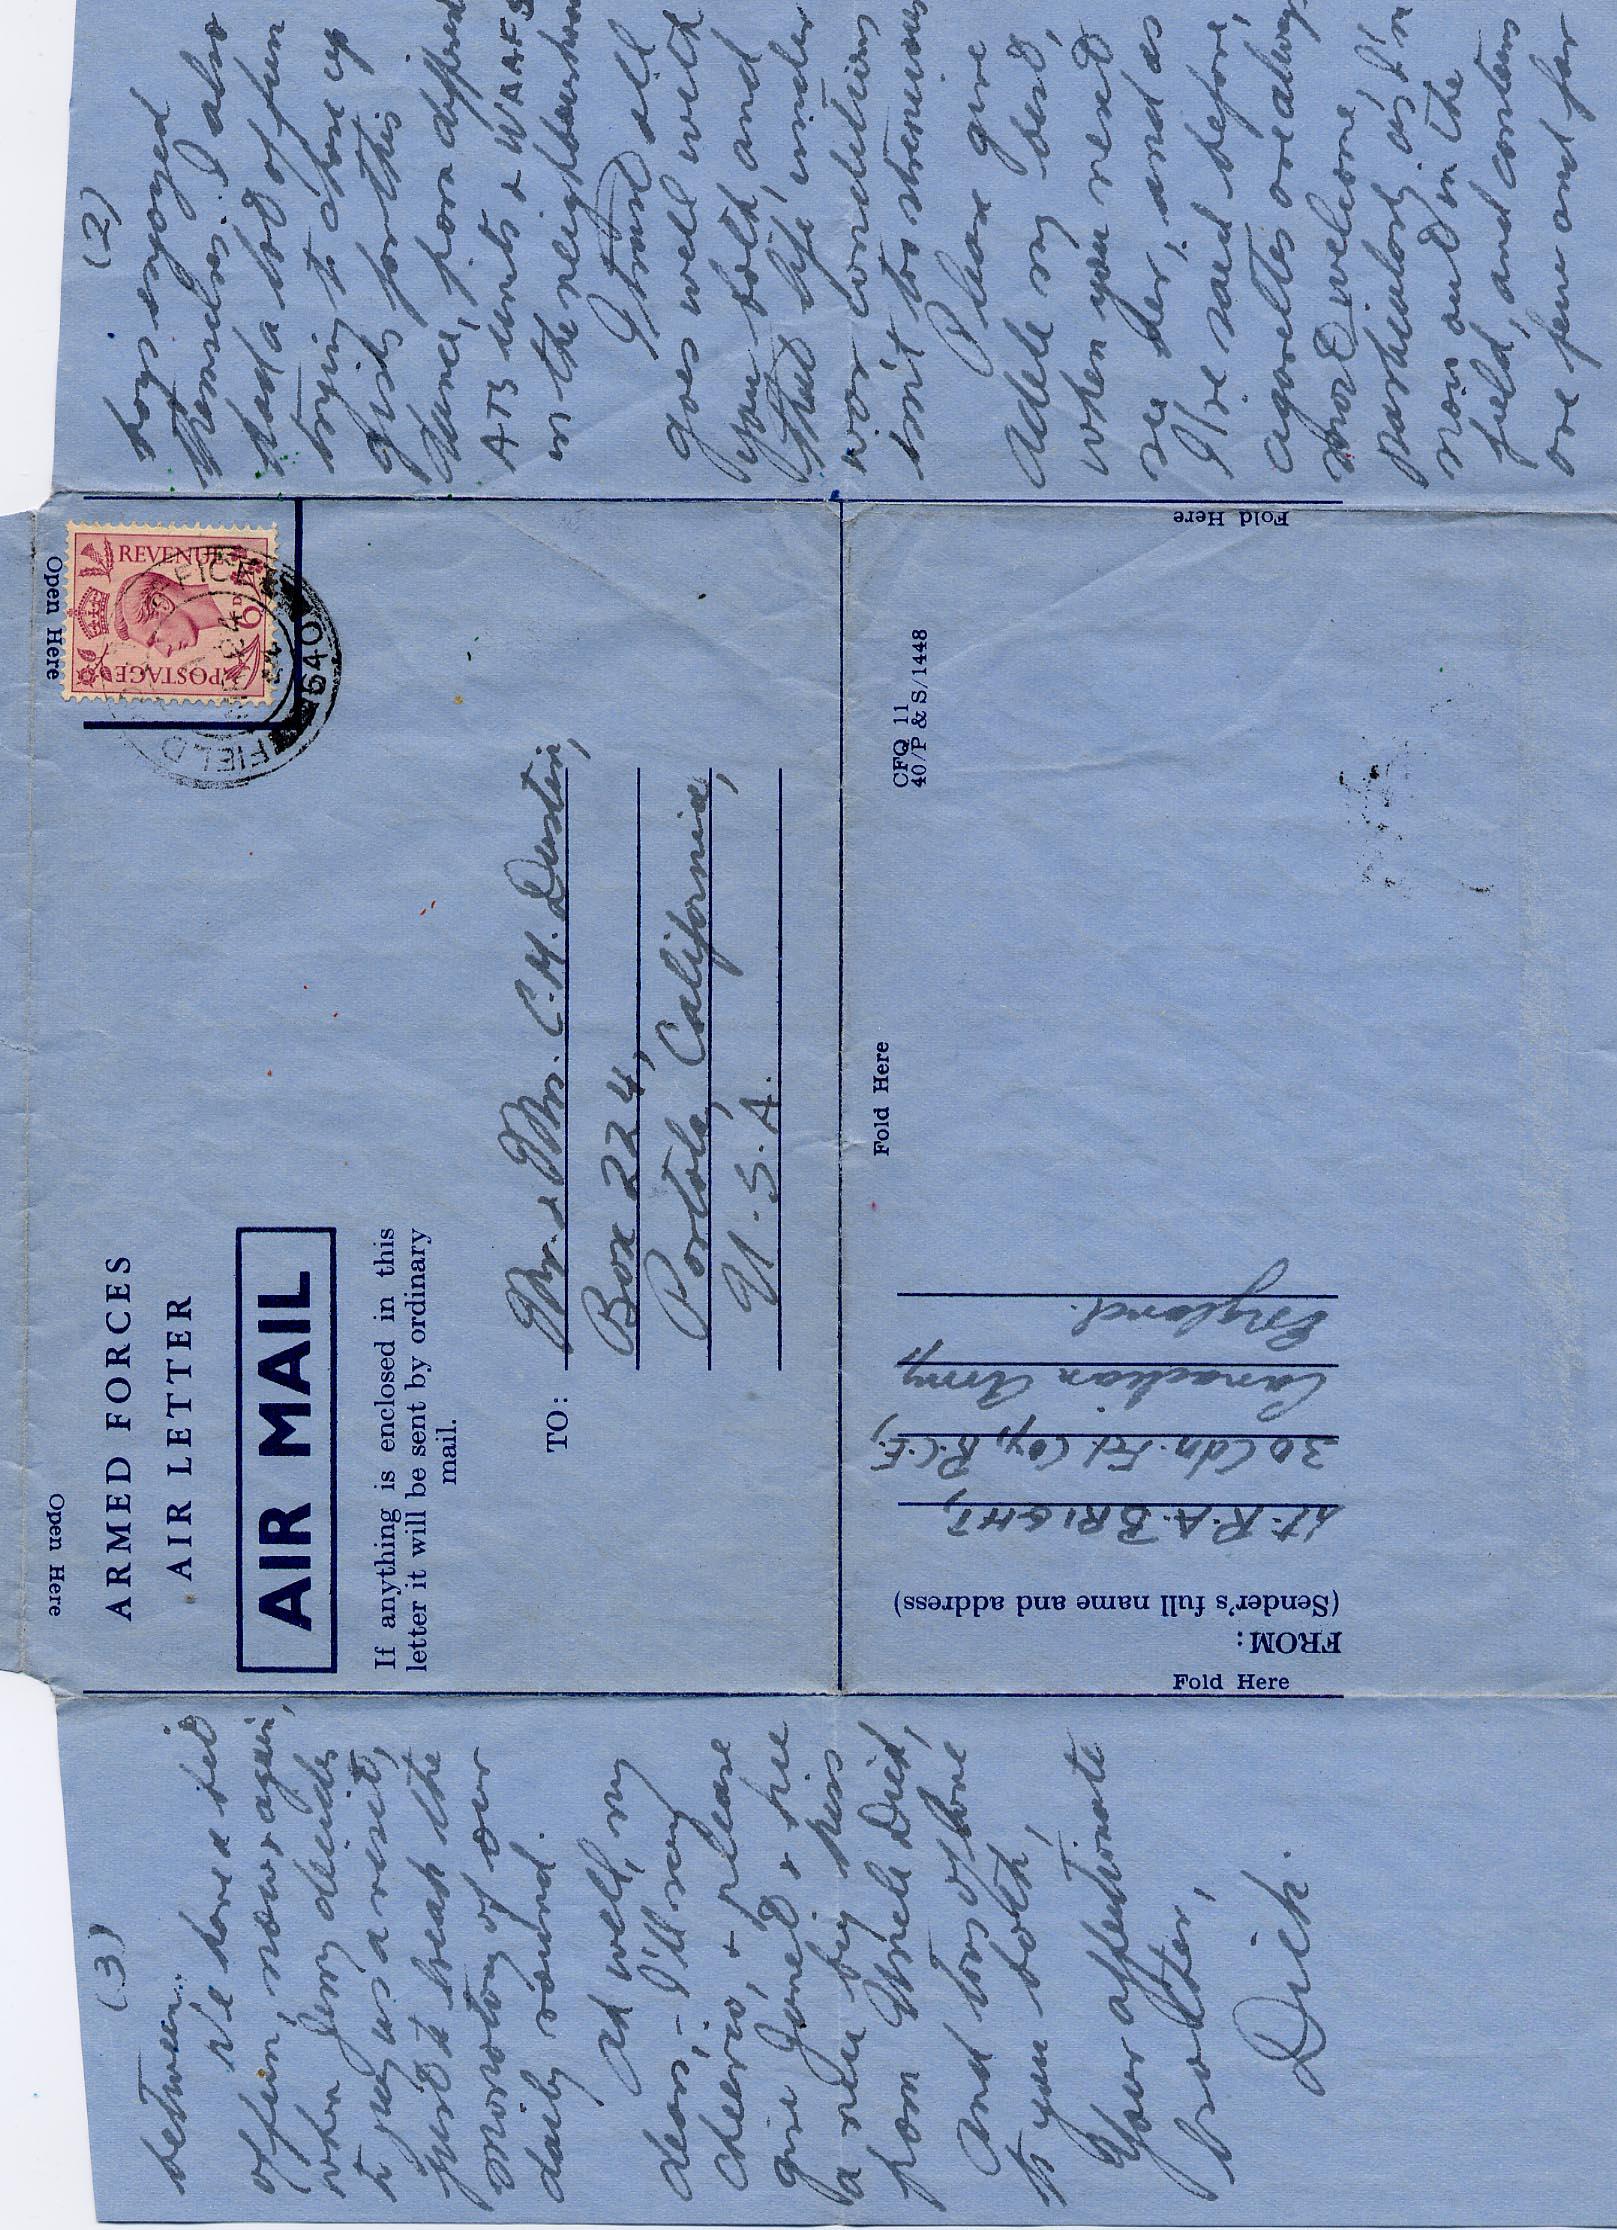 Open Here
Open Here
ARMED FORCES
AIR LETTER
AIR MAIL
If anything is enclosed in this
letter it will be sent by ordinary
mail.
REVENUE
POSTAGE
9D
FIELD
640
TO:
Mr. & Mrs. C.H. Dustin,
Box 224,
Portola, California,
U.S.A.
Fold Here
CFQ 11
40/P & S/1448
Fold Here
Fold Here
FROM:
(Sender's full name and address)
Lt. R.A. BRIGHT,
30 Cdn. Fd. Coy, R.C.E.,
Canadian Army,
England.
(2)
boys enjoyed
themselves. I also
had a lot of fun
trying to drum up
girls for this
dance, from different
ATS units & WAAFS
in the neighbourhood
I trust all
goes well with
you both, and
that life, under
war conditions
isn't too strenuous
Please give
Adele my best,
when you next
see her; and as
I've said before,
cigarettes are always
most welcome,
particularly as I'm
now out in the
field, and canteens
are few and far
(3)
between.
We have a bit
of fun, now & again,
when Jerry decides
to pay us a visit,
just to break the
monotony of our
daily round.
Ah well, my
dears, - I'll say
cheerio, & please
give Janet & 
a real big kiss
from Uncle Dick,
And lots of love
to you both,
Your affectionate
brother,
Dick.